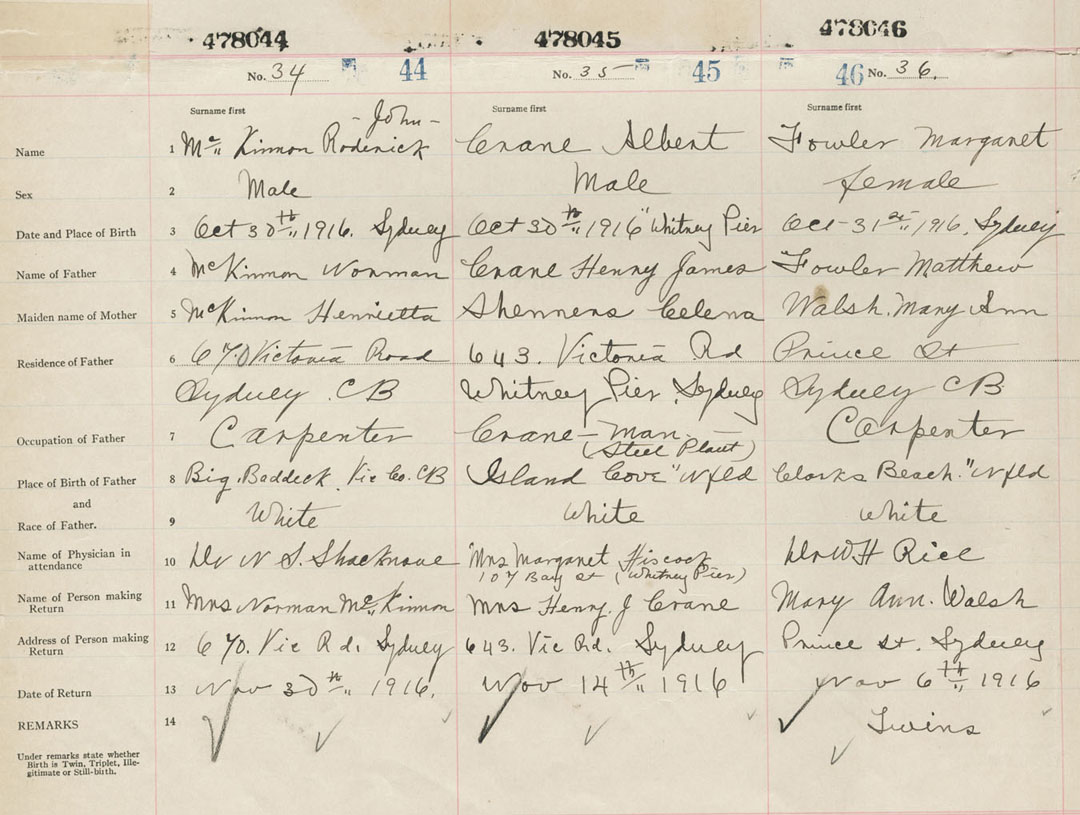 478044 478045 478046
No. 34 44 No. 35 45 46 No. 36.
Surname first Surname first Surname first
- John -
Name 1 Mc Kinnon Roderick Crane Albert Fowler Margaret
Sex 2 Male Male female
Date and Place of Birth 3 Oct 30th 1916. Sydney Oct 30th 1916 " Whitney Pier Oct - 31st 1916, Sydney
Name of Father 4 McKinnon Norman Crane Henry James Fowler Matthew
Maiden name of Mother 5 McKinnon Henrietta Shenners Celena Walsh. Mary Ann
Residence of Father 6 670 Victoria Road 643. Victoria Rd Prince St
Sydney. CB Whitney Pier, Sydney Sydney CB
Occupation of Father 7 Carpenter Crane - man. Carpenter
(Steel Plant)
Place of Birth of Father 8 Big. Baddeck Vic Co. CB Island Cove " Nfld Clarks Beach. " Nfld
and
Race of Father. 9 White White White
Name of Physician in attendance 10 Dr N S. Shacknove Mrs Margaret Hiscock Dr W H Rice
107 Bay St (Whitney Pier)
Name of Person making Return 11 Mrs Norman Mc Kinnon Mrs Henry. J Crane Mary Ann. Walsh
Address of Person making Return 12 670. Vic Rd. Sydney 643. Vic Rd. Sydney Prince St. Sydney
Date of Return 13 Nov 30th 1916. Nov 14th 1916 Nov 6th 1916
REMARKS 14 Twins
Under remarks state whether
Birth is Twin, Triplet, Ille-
gitimate or Still-birth.